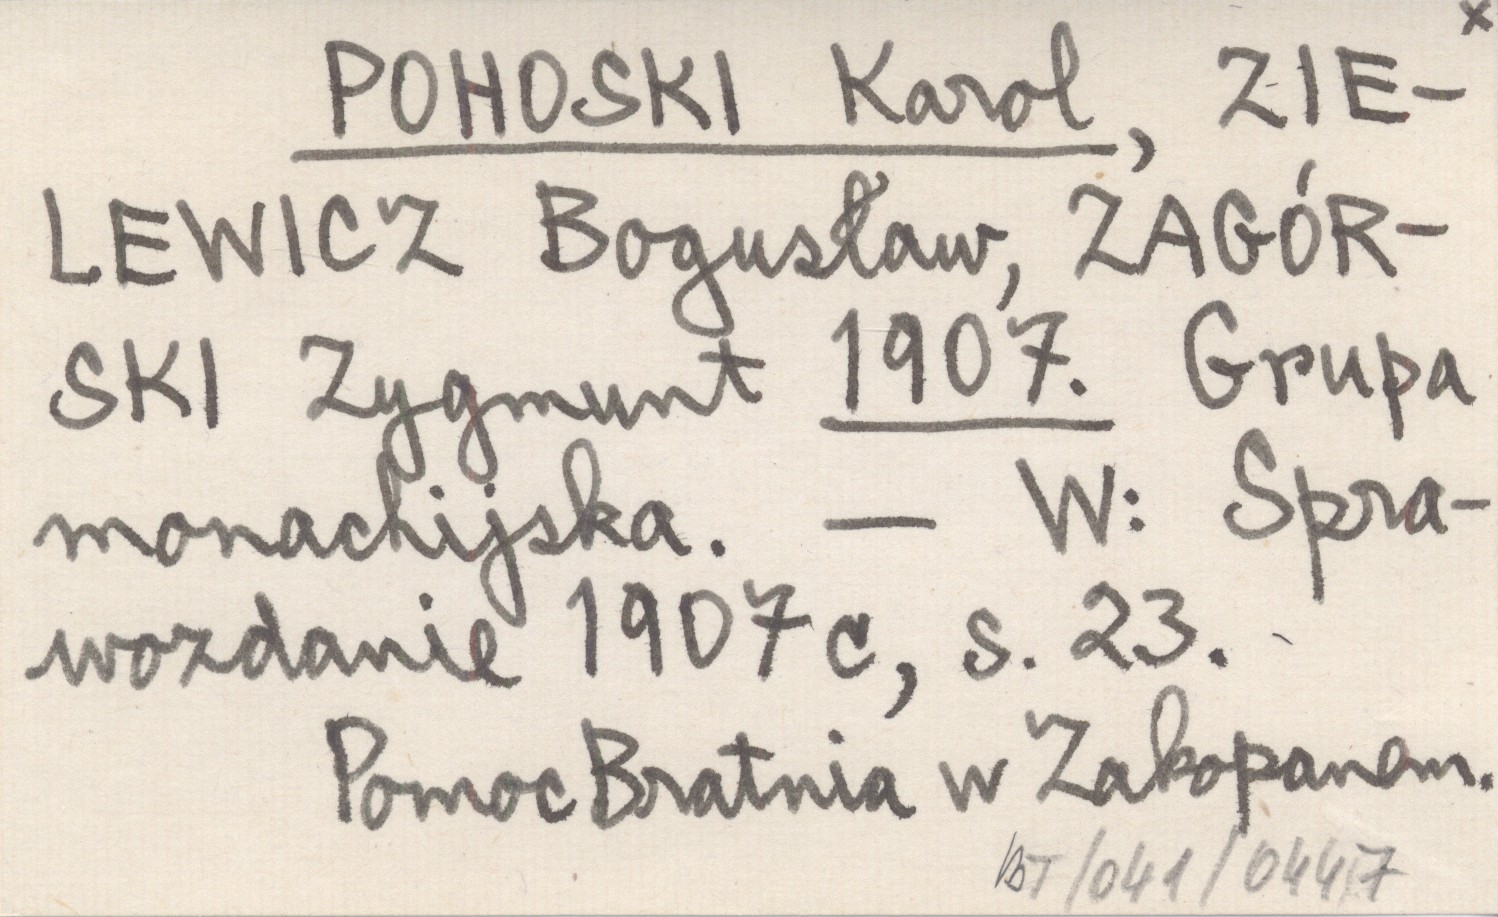 x
POHOSKI Karol, ZIE-
LEWICZ Bogusław, ZAGÓR-
SKI Zygmunt 1907. Grupa
monachijska. — W: Spra-
wozdanie 1907c, s. 23.
Pomoc Bratnia w Zakopanem.
BT/041/0447